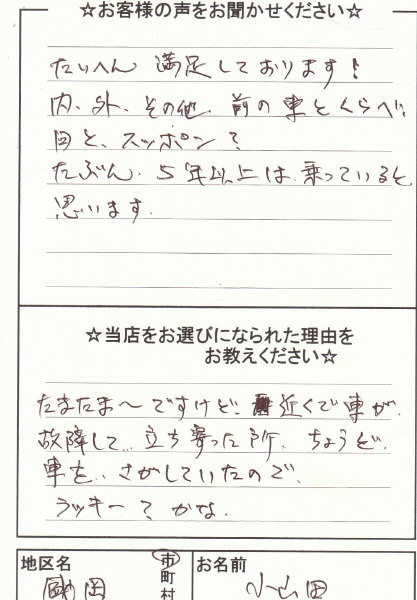 ☆お客様の声をお聞かせください☆
たいへん 満足しております!
内、外、その他、前の車とくらべ、
月と、スッポン?
たぶん、5年以上は、乗っていると
思います。
☆当店をお選びになられた理由を
お教えください☆
たまたま〜ですけど、近くで車が、
故障して、立ち寄った所、ちょうど、
車を、さがしていたので、
ラッキー?かな。
地区名
市
町
村
お名前
小山田